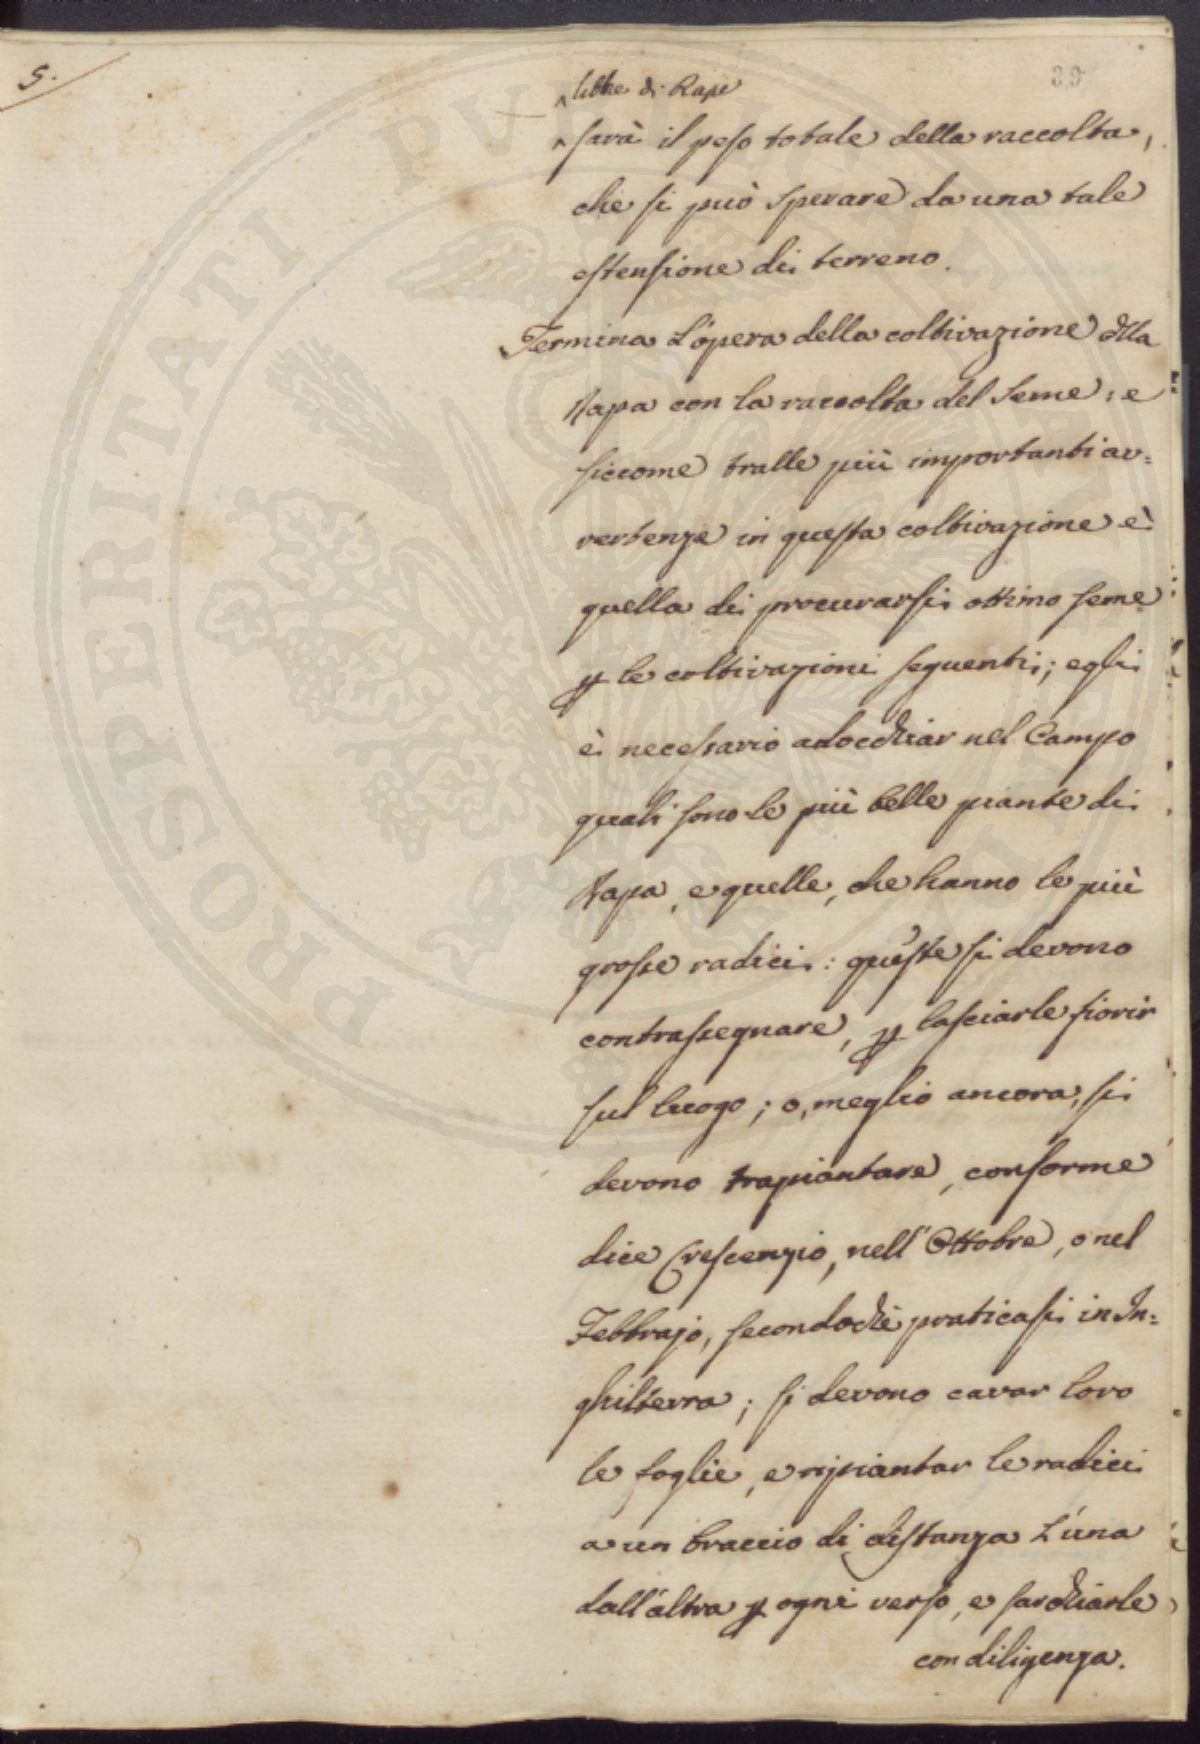 5.
89
libbre di Rape
sarà il peso totale della raccolta,
che si può sperare da una tale
estensione di terreno.
Termina l'opera della coltivazione dlla
Rapa con la raccolta del Seme; e
siccome tralle più importanti av=
vertenze in questa coltivazione è
quella di procurarsi ottimo seme
ꝑ le coltivazioni seguenti; egli
è necessario adocchiar nel Campo
quali sono le più belle piante di
Rapa, e quelle, che hanno le più
grosse radici: queste si devono
contrassegnare, ꝑ lasciarle fiorir
sul luogo; o, meglio ancora, si
devono trapiantare, conforme
dice Crescenzio, nell'Ottobre, o nel
Febbrajo, secondochè praticasi in In=
ghilterra; si devono cavar loro
le foglie, e ripiantar le radici
a un braccio di distanza l'una
dall'altra ꝑ ogni verso, e sarchiarle
con diligenza.
PROSPERITATI PVBLICAE AVGENDAE